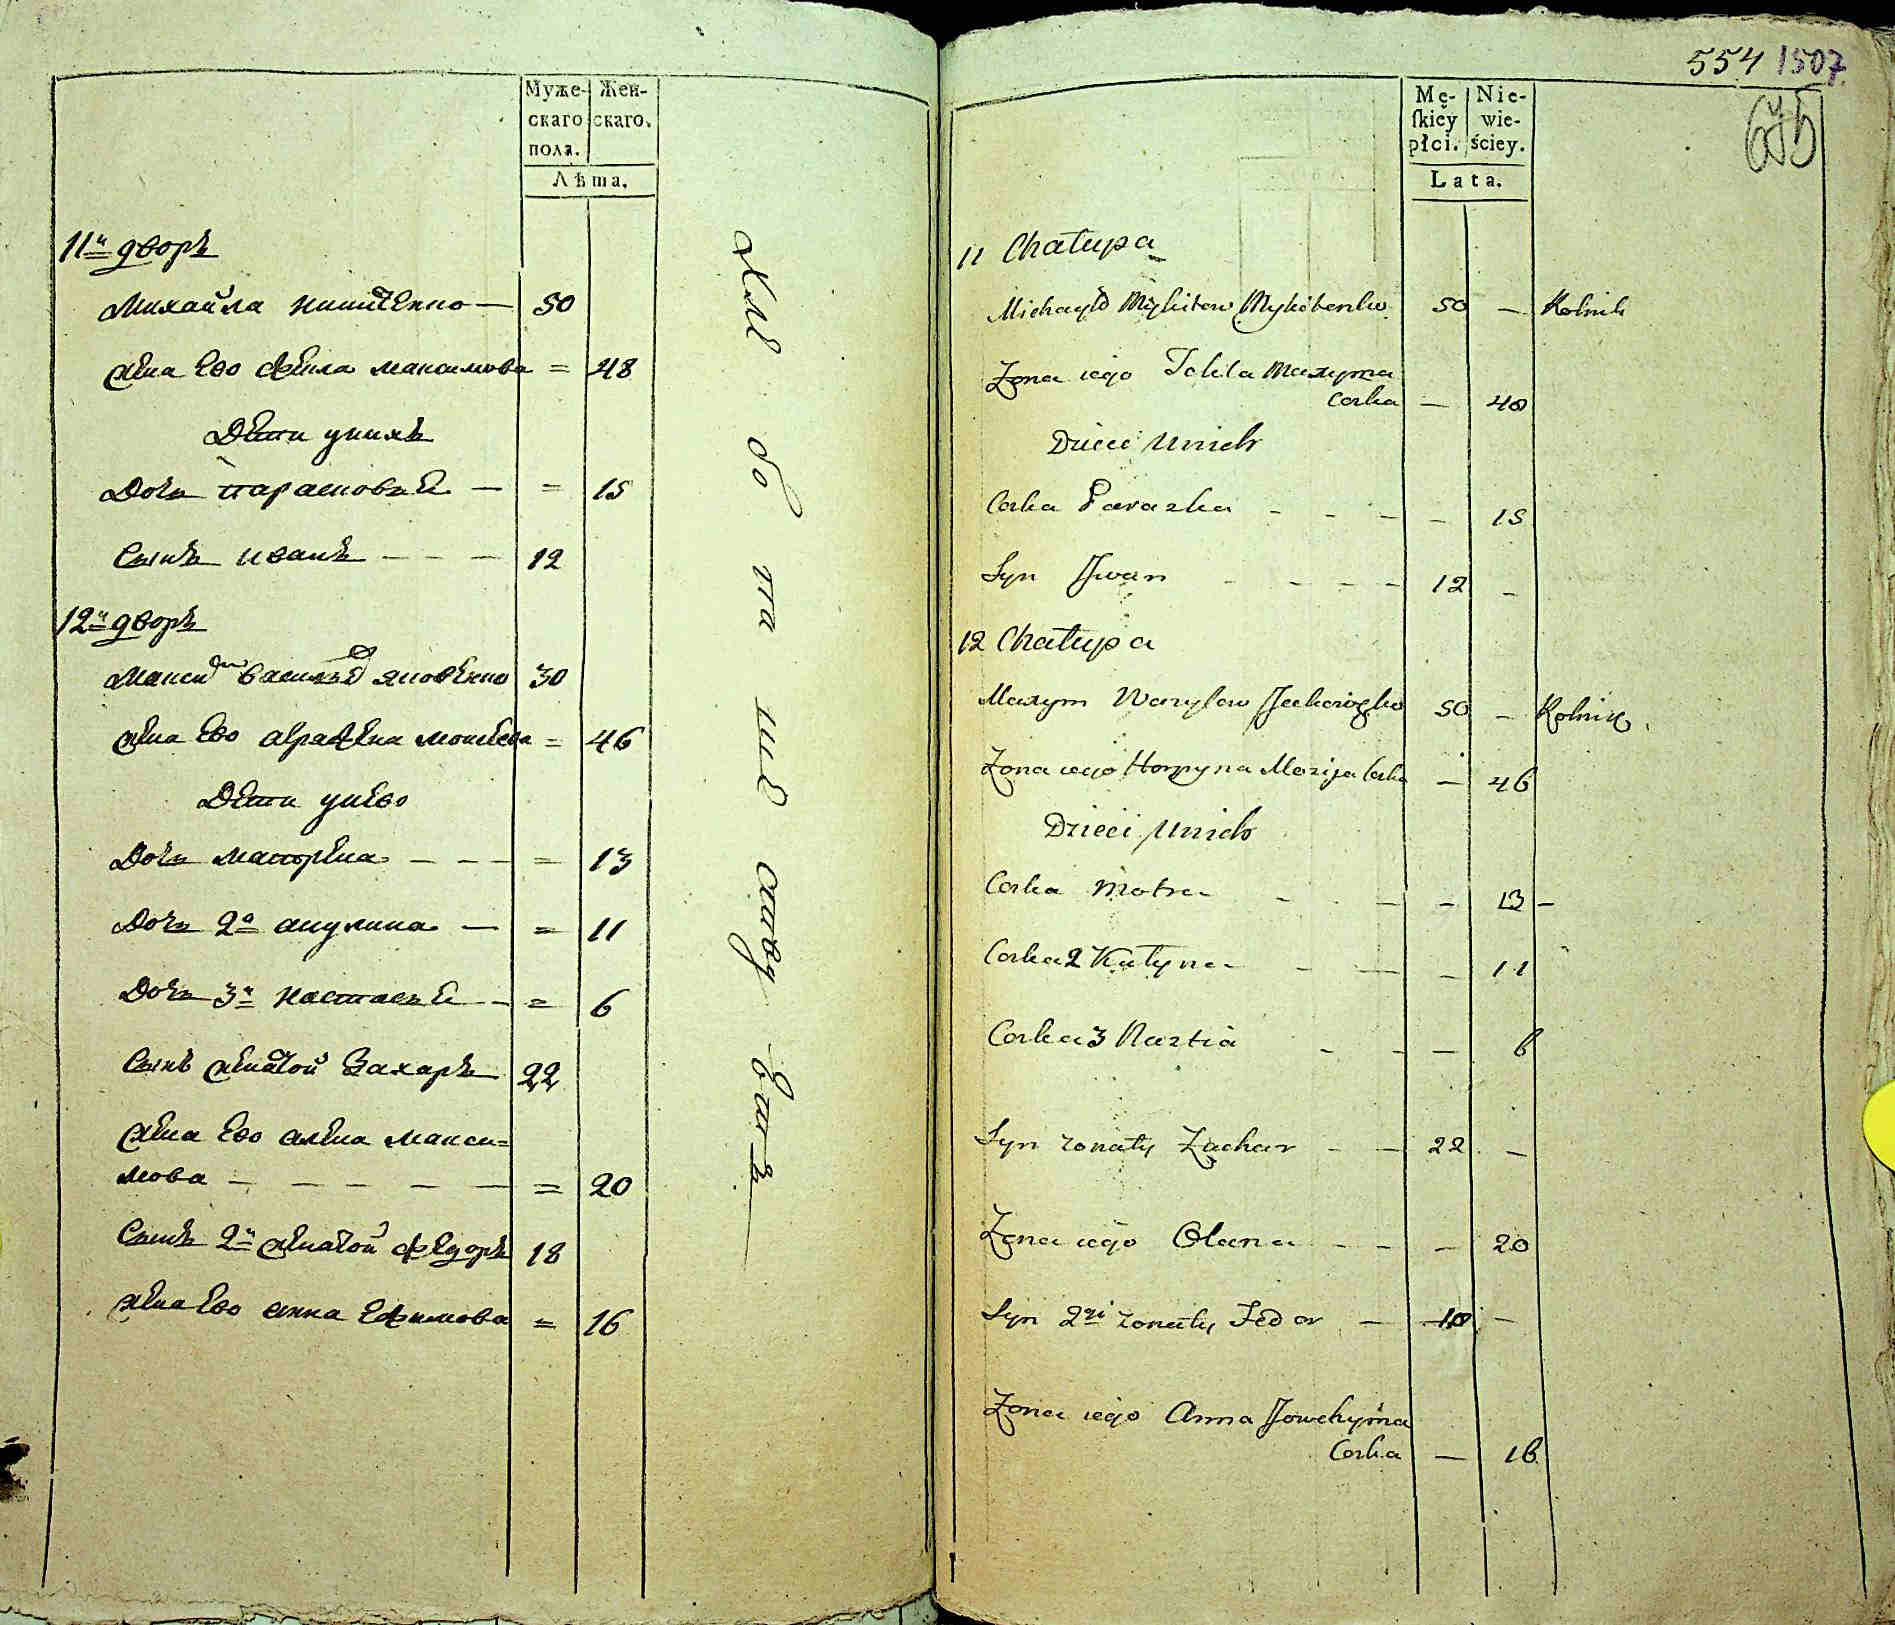 Муже-
скаго
пола.
Жен-
скаго.
Лѣта.
11й дворъ
Михайла Никитенко — 50
жена Его Фекла Максимова = 48
Дети унихъ
Дочь Парасковья — = 15
Сынъ Иванъ — — — 12
12й дворъ
Максим Васильев Яковенко 30
жена Его аграфена Мосиева = 46
Дети унего
Дочь Матрена — — — = 13
Дочь 2я акулина — = 11
Дочь 3я Настасья — = 6
Сынъ женатой Захаръ 22
жена Его алена Макси=
мова — — — — — = 20
Сынъ 2й женатой Федоръ 18
жена Его анна Ефимова = 16
554 1507
Mę-
skiey
płci.
Nie-
wie-
ściey.
Lata.
11 Chałupa
Michayło Mykitow Mykitenko 50 — Rolnik
Zona iego Tekla Maxyma
Corka — 48
Dzieci Unich
Corka Paraska - - - - 15
Syn Jwan - - - - 12 -
12 Chałupa
Maxym Wasylow Jackowenko 50 — Rolnik.
Zona iego Horpyna Mosija Corka — 46
Dzieci Unich
Corka Motra - - - - 13 -
Corka 2 Kulyna - — - 11
Corka 3 Nastia - - — 6
Syn zonaty Zachar - — 22 . —
Zona iego Olana - - — 20
Syn 2gi zonaty Fedor — 18 —
Zona iego Anna Jowchyma
Corka — 16